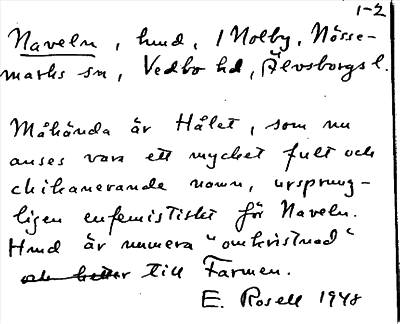 1-2
Naveln, hmd, 1 Nolby, Nösse-
marks sn, Vedbo hd, Älvsborgs l.
Måhända är Hålet, som nu
anses vara ett mycket fult och
chikanerande namn, ursprung-
ligen eufemistiskt för Naveln.
Hmd är numera "omkristnad"
och heter till Farmen.
E. Rosell 1948